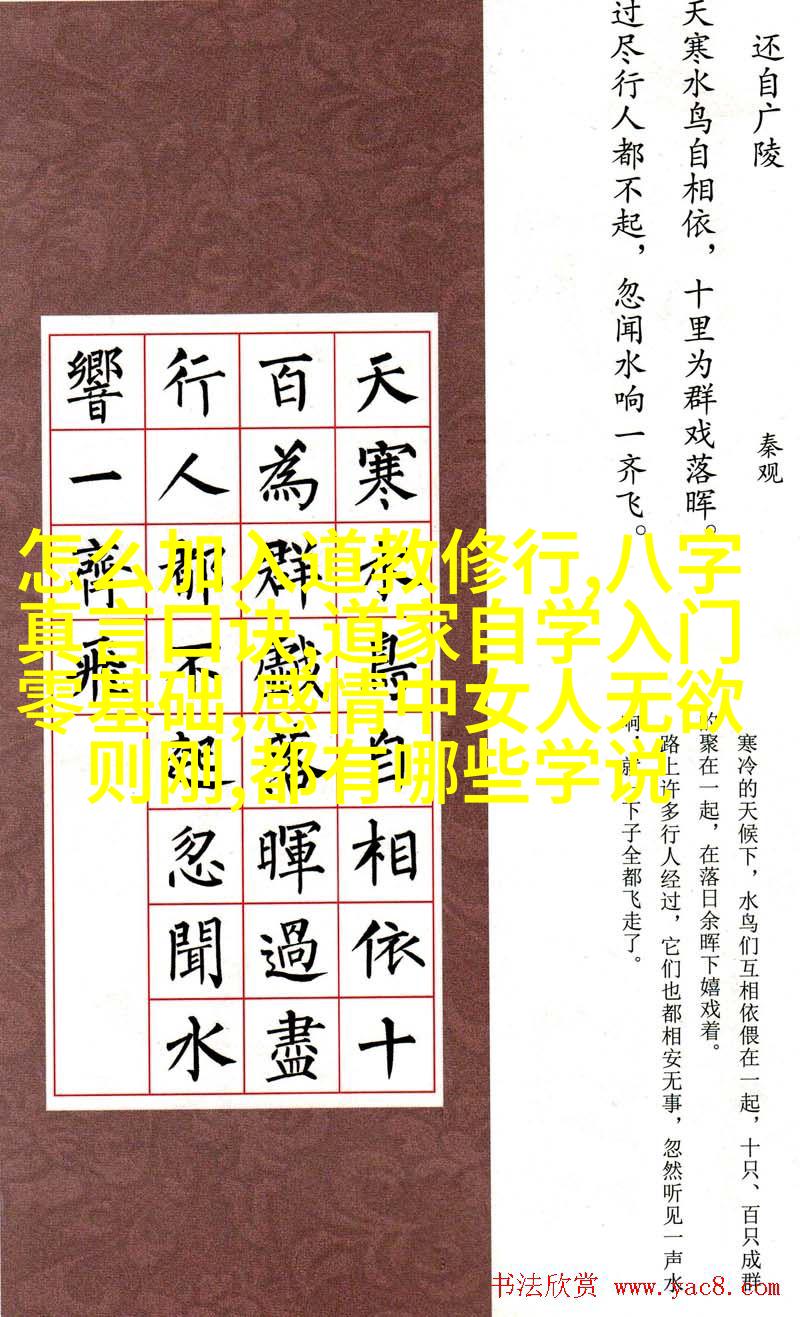 还自广陵
秦观
天寒水鸟自相依，十里为群戏落晖。
过尽行人都不起，忽闻水响一齐飞。
天寒水鳥自相依十
百為群戲落暉過盡
行人都不起忽聞水
響一齊飛
怎么加入道教修行,八字
真言口诀,道家自学入门
零基础,感情中女人无欲
则刚,都有哪些学说
寒冷的天候下，水鸟们互相依偎在一起，十只、百只成群
的聚在一起，在落日余晖下嬉戏着。
路上许多行人经过，它们也都相安无事，忽然听见一声水
响，就下子全都飞走了。
书法欣赏 www.yac8.com